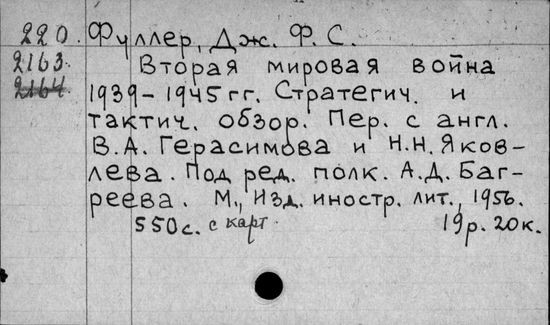 220. Фуллер, Дж. Ф. С.
2163 Вторая мировая война
2164 1939-1945 гг. Стратегич. и
тактич. обзор. Пер. с англ.
В.А. Герасимова и Н.Н. Яков-
лева. Под ред. полк. А.Д. Баг-
реева. М., Изд. иностр. лит., 1956.
550с. с карт. 19р. 20к.